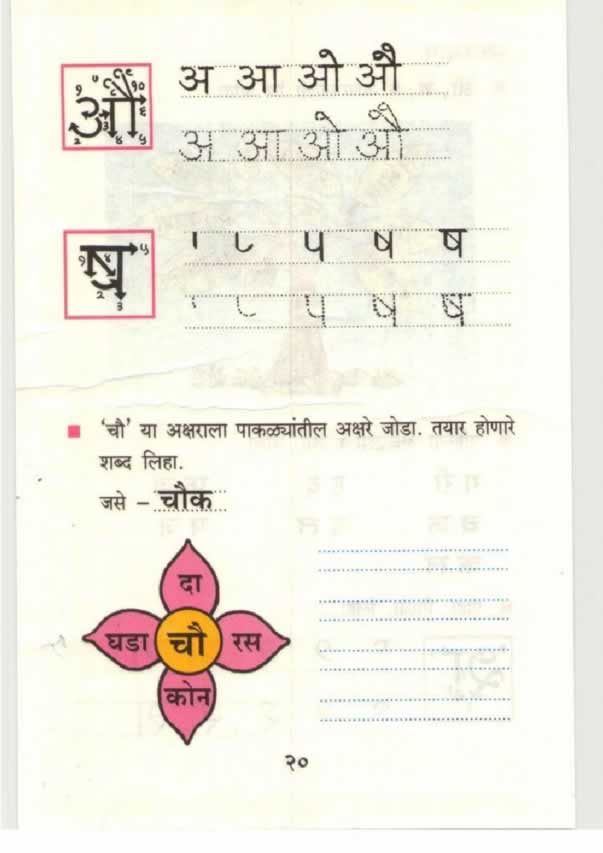 औ
अ आ ओ औ
अ आ ओ औ
ष
प ष ष
प ष ष
'चौ' या अक्षराला पाकळ्यांतील अक्षरे जोडा. तयार होणारे
शब्द लिहा.
जसे – चौक
दा
घडा चौ रस
कोन
२०